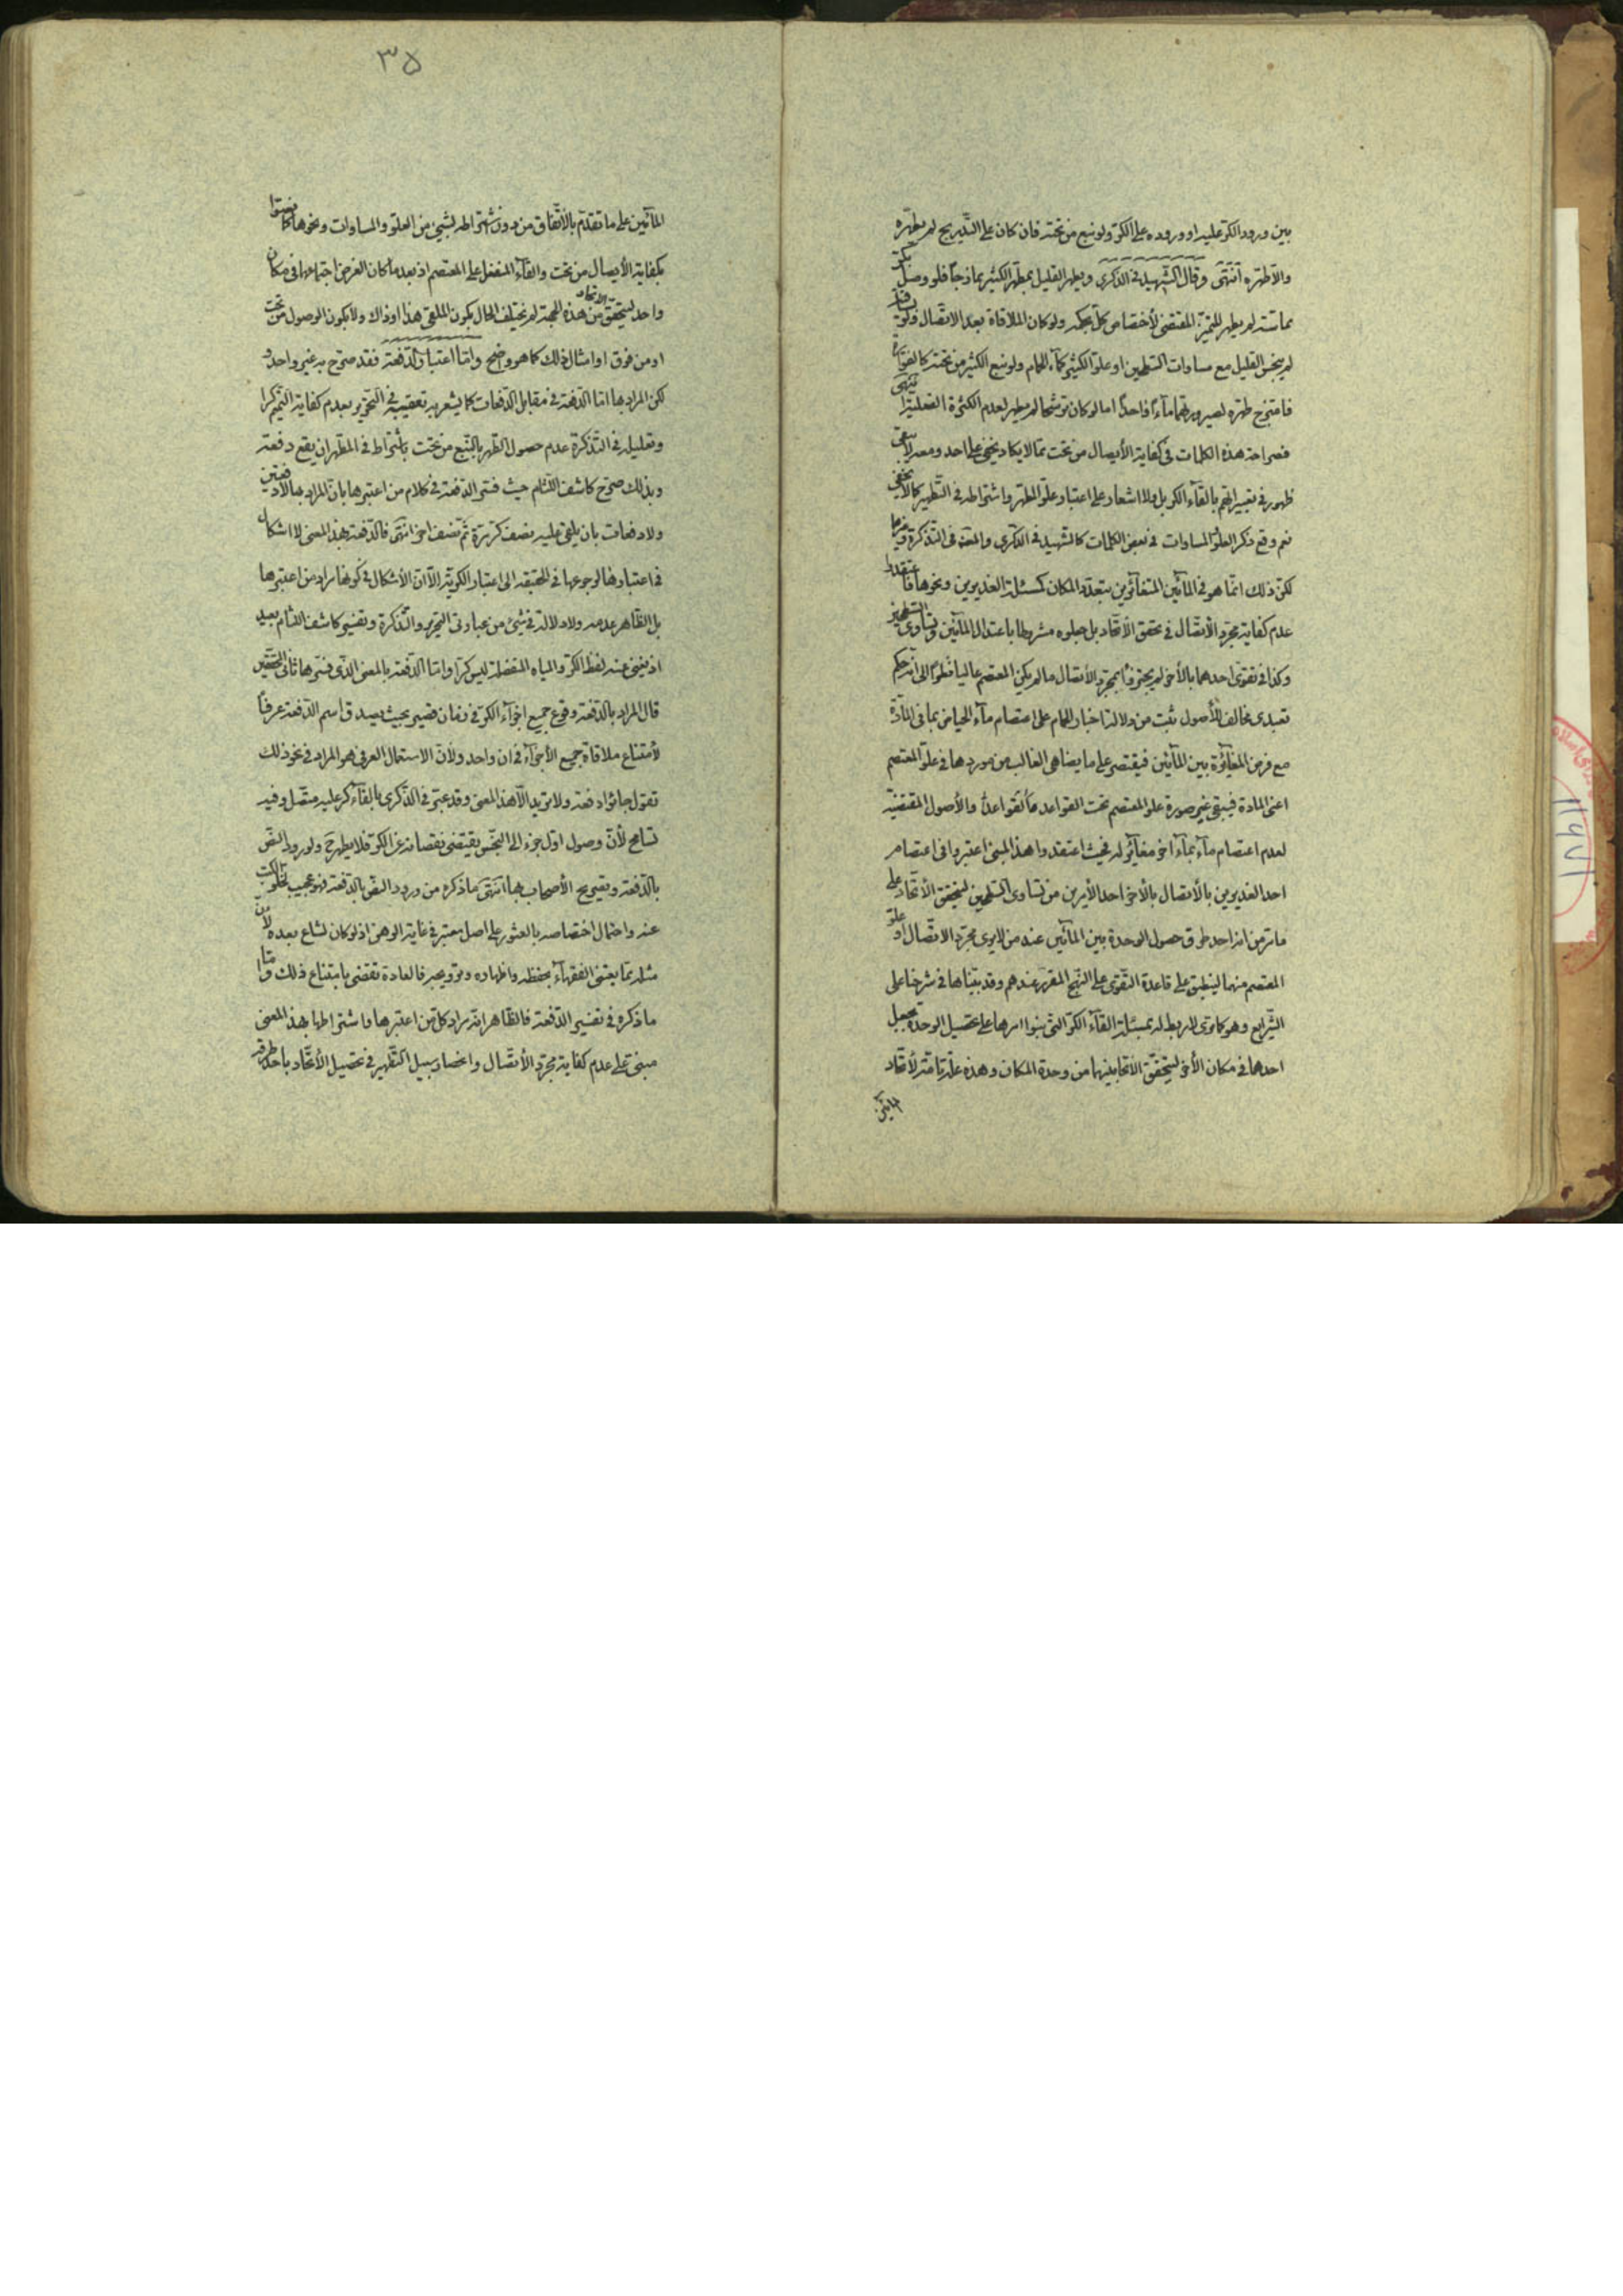 بين ورود الكر عليه او وروده على الكر ولو نبع من تحته فان كان على التدريج لم يطهره
والا طهره انتهى وقال الشهيد في الذكرى ويطهر القليل بمطهر الكثير ممازجا فلو وصل بكر
مماسة لم يطهر للتميز المقتضى لاختصاص كل بحكمه ولو كان الملاقاة بعد الاتصال ولو بساقية
لم ينجس القليل مع مساوات السطحين او علو الكثير كماء الحمام ولو نبع الكثير من تحته كالفوارة
فامتزج طهره لصيرورتهما ماء واحدا اما لو كان ترشحا لم يطهر لعدم الكثرة الفعلية انتهى
فصراحة هذه الكلمات في كفاية الأيصال من تحت مما لا يكاد يخفى على احد
ظهور في تعبيراتهم بالقاء الكر بل ولا اشعار على اعتبار علو المطهر واشتراطه في التطهير كما لا يخفى
نعم وقع ذكر العلو والمساوات في بعض الكلمات كالشهيد في الذكرى في التذكرة
لكن ذلك انما هو في المائين المتغائرين بتعدد المكان كمسئلة الغديرين ونحوها
عدم كفاية مجرد الأتصال في تحقق الأتحاد بل جعلوه مشروطا باعتدال المائين وتساوى السطحين
وكذا في تقوى احدهما بالأخر لم يجتزؤا بمجرد الأتصال ما لم يكن المعتصم عاليا نظرا الى انه حكم
تعبدى مخالف للأصول ثبت من دلالة اخبار الحمام على اعتصام ماء الحياض بما في المادة
مع فرض المغايرة بين المائين فيقتصر على ما يضاهى الغالب من موردها في علو المعتصم
اعنى المادة فيبقى غير صورة علو المعتصم تحت القواعد والأصول المقتضية
لعدم اعتصام ماء بماء اخر مغائر له فحيث اعتقدوا هذا المبنى اعتبروا في اعتصام
احد الغديرين بالأتصال بالأخر احد الأمرين من تساوى السطحين ليتحقق الأتحاد على
ما مر من انه احد طرق حصول الوحدة بين المائين عند من لا يرى مجرد الاتصال او علو
المعتصم منهما لينطبق على قاعدة التقوى على النهج المقرر عندهم وقد بيناها في شرحنا على
الشرايع وهو كما ترى لا ربط له بمسئلة القاء الكر التى بنوا امرها على تحصيل الوحدة بجعل
احدهما في مكان الأخر ليتحقق الاتحاد بينهما من وحدة المكان وهذه علة تامة لأتحاد
المائين
٣٥
المائين على ما تقدم بالأتفاق من دون اشتراطه بشيئ من العلو والمساوات ونحوها كما نصوا
بكفاية الأيصال من تحت والقاء المنفعل على المعتصم اذ بعد ما كان الغرض اجتماعهما في مكان
واحد ليتحقق الاتحاد من هذه الجهة لم يختلف الحال بكون الملقى هذا او ذاك ولا بكون الوصول من تحت
او من فوق او امثال ذلك كما هو واضح واما اعتبار الدفعة فقد صرح به غير واحد
لكن المراد بها اما الدفعة في مقابل الدفعات كما يشعر به تعقيبه في التحرير بعدم كفاية التتميم كرا
وتعليله في التذكرة عدم حصول الطهر بالنبع من تحت باشتراط في المطهر ان يقع دفعة
وبذلك صرح كاشف اللثام حيث فسر الدفعة في كلام من اعتبرها بان المراد بها لا دفعتين
ولا دفعات بان يلقى عليه نصف كر مرة ثم نصف اخر انتهى فالدفعة بهذا المعنى لا اشكال
في اعتبارها لرجوعها في الحقيقة الى اعتبار الكرية الا ان الأشكال في كونها مراد من اعتبرها
بل الظاهر عدمه ولا دلالة في شيئ من عبارتى التحرير والتذكرة وتفسير كاشف اللثام بعيد
اذ يغنى عنه لفظ الكر والمياه المنفصلة ليس كرا واما الدفعة بالمعنى الذى فسرها ثانى المحققين
قال المراد بالدفعة وقوع جميع اجزاء الكر في زمان قصير بحيث يصدق اسم الدفعة عرفا
لأمتناع ملاقاة جميع الأجزاء في ان واحد ولأن الاستعمال العرفى هو المراد في نحو ذلك
تقول جاؤا دفعة ولا تريد الا هذا المعنى وقد عبر في الذكرى بالقاء كر عليه متصل وفيه
تسامح لأن وصول اول جزء الى النجس يقتضى نقصانه عن الكر فلا يطهر ح ولورود النص
بالدفعة وتصريح الأصحاب بها انتهى ما ذكره من ورود النص بالدفعة فهو عجيب لخلو الكتب
عنه واحتمال اختصاصه بالعثور على اصل معتبر في غاية الوهن اذ لو كان لشاع بعده لان
مثله مما يعتنى الفقهاء بحفظه واظهاره وترويجه فالعادة تقضى بامتناع ذلك واما
ما ذكره في تفسير الدفعة فالظاهر انه مراد كل من اعتبرها واشتراطها بهذا المعنى
مبنى على عدم كفاية مجرد الأتصال وانحصار سبيل التطهير في تحصيل الأتحاد باحد طرقه